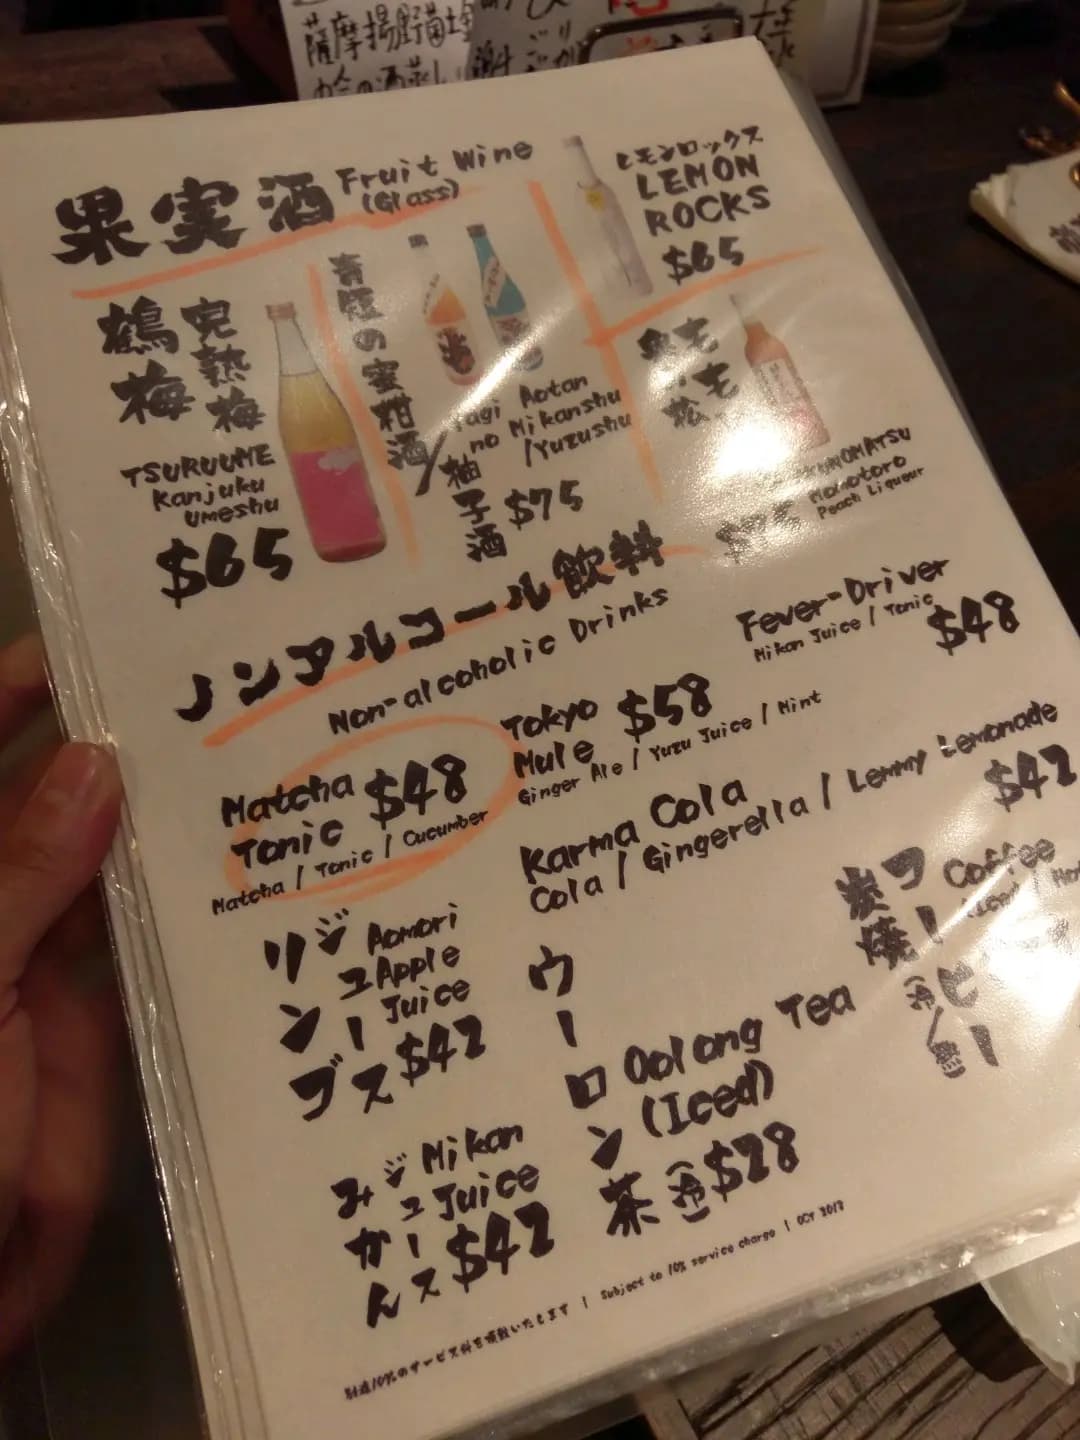 薩摩揚
の酒蒸し
果実酒
Fruit Wine
(Glass)
レモンロックス
LEMON
ROCKS
$65
鶴梅
完熟梅
TSURUUME
Kanjuku
Umeshu
$65
の蜜柑酒/柚子酒
Aotan
no Mikanshu
/Yuzushu
$75
松
もも
Momotoro
Peach Liqueur
ノンアルコール飲料
Non-alcoholic Drinks
Fever-Driver
Mikan Juice / Tonic
$48
Matcha
Tonic
$48
Matcha / Tonic / Cucumber
Tokyo
Mule
$58
Ginger Ale / Yuzu Juice / Mint
Karma Cola
Cola / Gingerella / Lemmy Lemonade
$42
リンゴ
ジュース
Aomori
Apple
Juice
$42
ウーロン茶(冷)
Oolong Tea
(Iced)
$28
炭焼
コーヒー
Coffee
みかん
ジュース
Mikan
Juice
$42
別途10%のサービス料を頂戴いたします | Subject to 10% service charge | OCT 2018